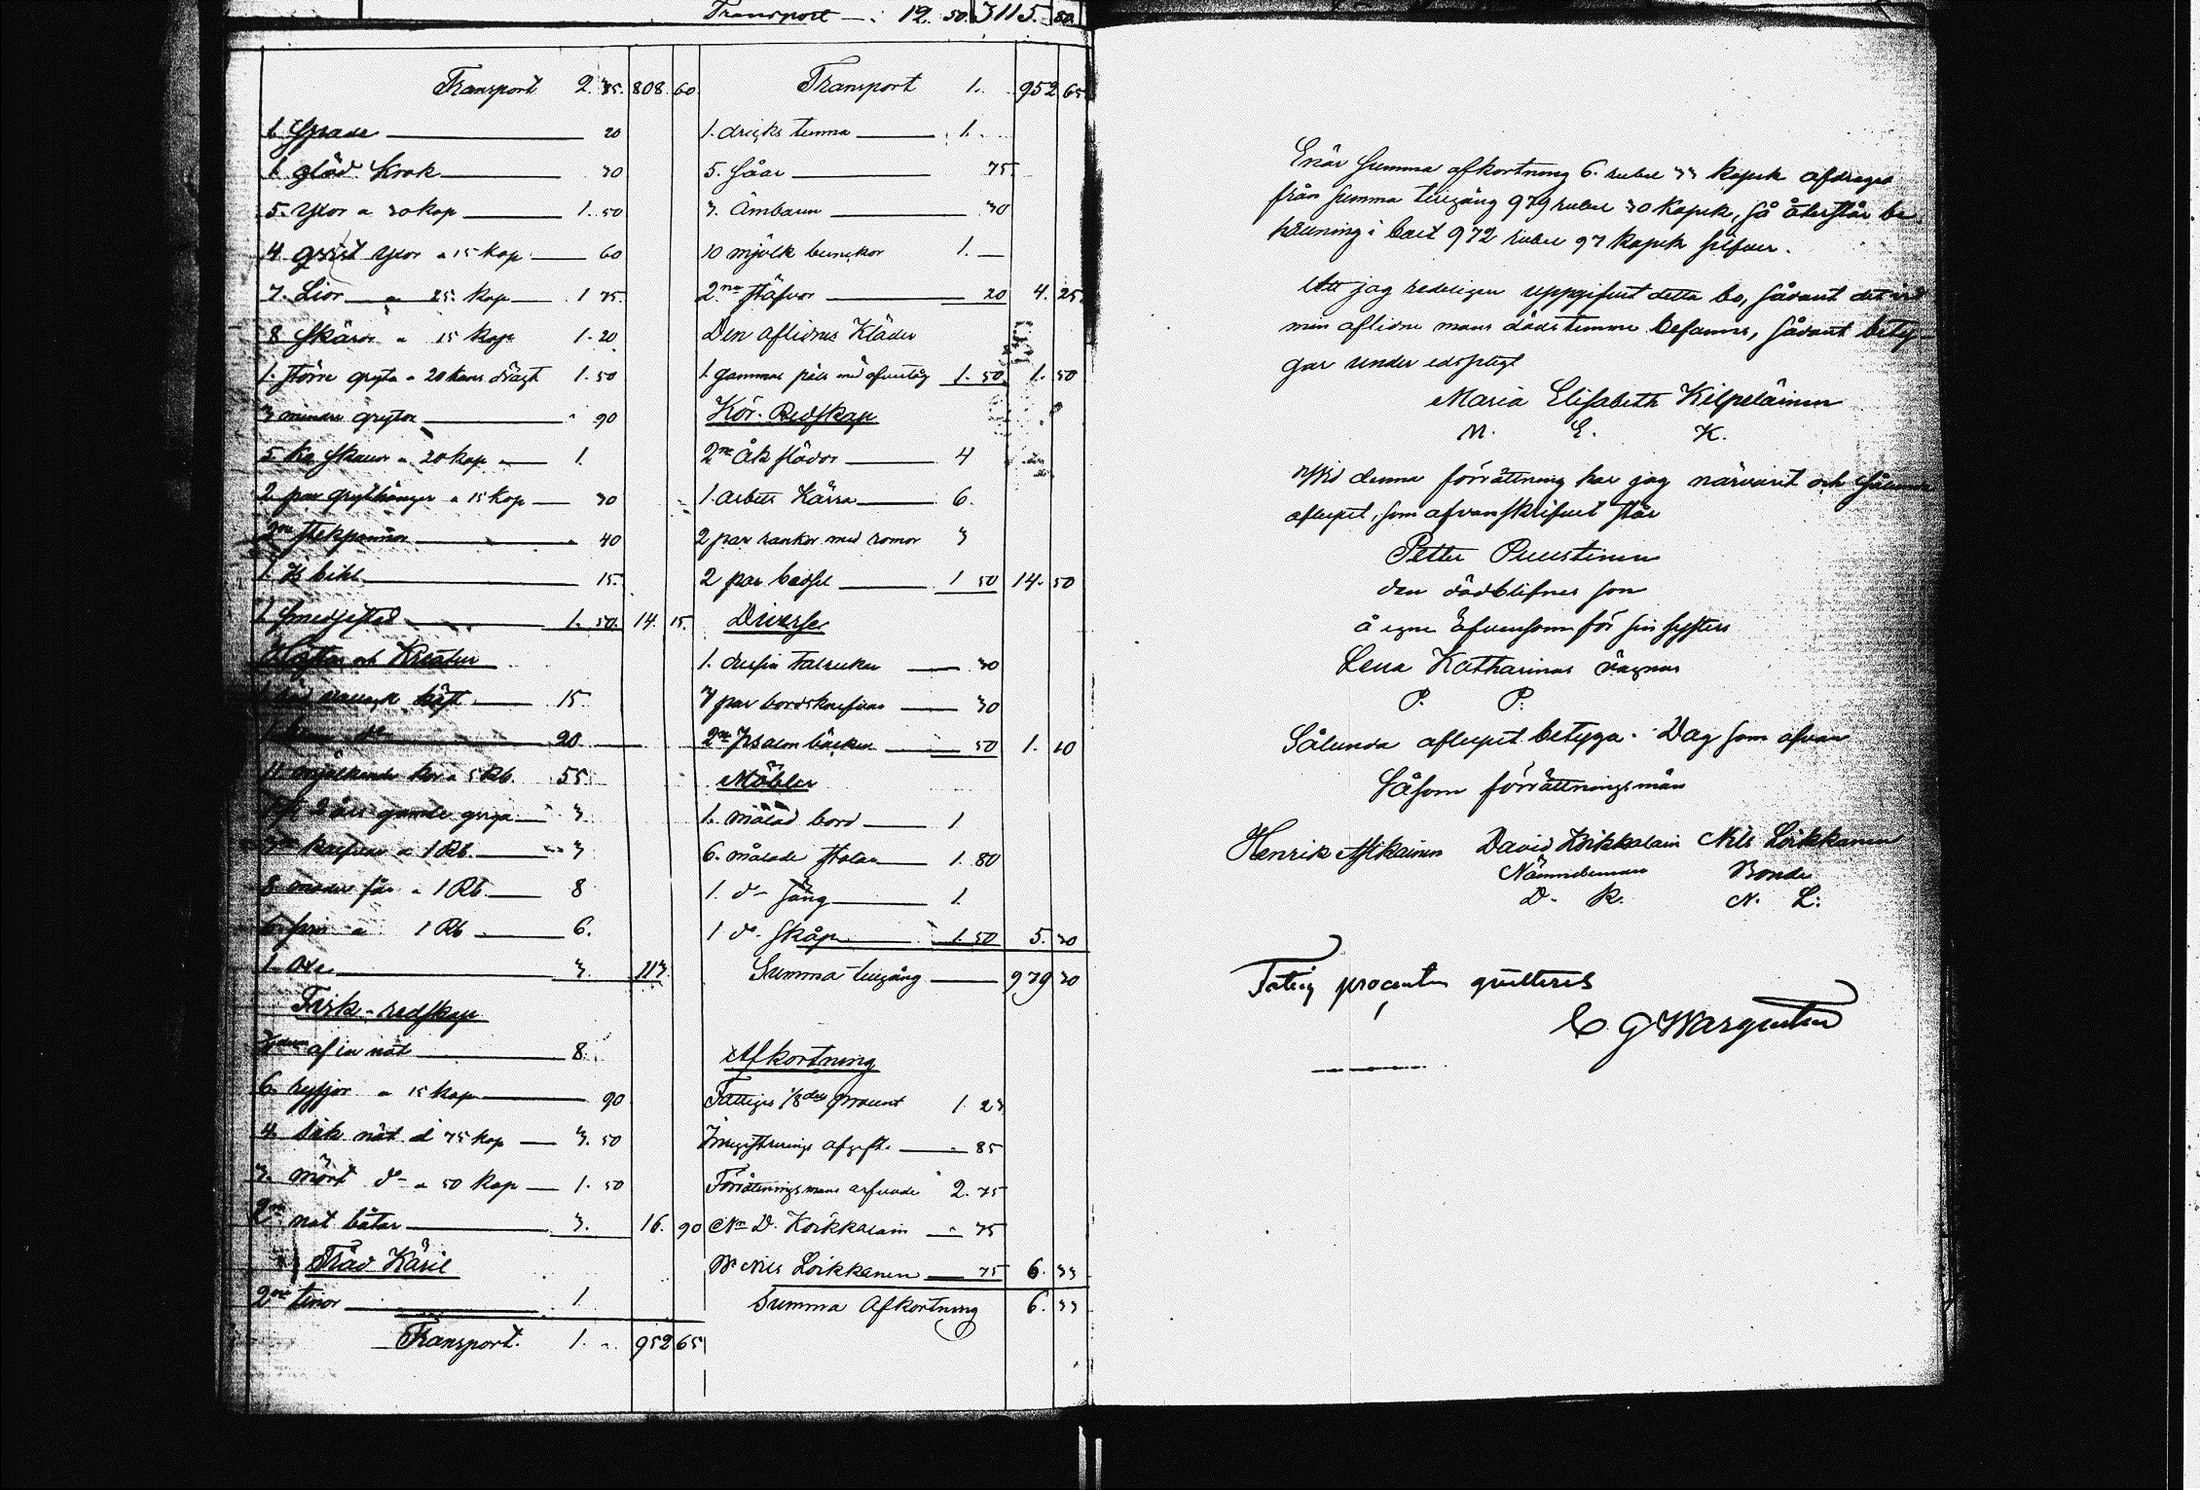 Transport — 12. 50. 3115. 50.
Transport 2. 35. 808. 60
1. Spade — 20
1. glöd Krok — 30
5. Yxor a 30 kop — 1. 50
4. Yxor a 15 kop — 60
7. Lior — a 25. kop — 1 75.
8 Skäror a 15 kop 1. 20
1. större gryta a 20 kans drägt 1. 50
3 mindre grytor — 90
5. a 20 kop — 1.
2. par grythänger a 15 kop — 30
2ne Stekpannor — 40
1. bihl — 15.
1. — 1. 50. 14. 15.
och Kreatur
1. — 15.
1. do — 20
11 mjölkande kor a 5 Rb. 55
2 års gamla — 3
a 1 Rb. — 3
8 moder får a 1 Rb. — 8
6. a 1 Rb — 6.
1. Oxe — 3. 113.
Fisk-redskap
af en nöt — 8.
6. ryssjor a 15 kop — 90
4. sik nät a 75 kop — 3. 50
3. mört do a 50 kop — 1. 50
2ne not båtar — 3. 16. 90
Träd Käril
2ne tinor — 1
Transport. 1. 952 65
Transport 1. 952 65
1. dricks tunna — 1.
5. Såar — 75.
3. Ämbarn — 30
10 mjölk bunckor 1. —
2ne Stäfvor — 20 4. 25.
Den Aflidnes Kläder
1. gammal päls med 1. 50. 1. 50
Kör-Redskap
2ne Åk slädor — 4
1. arbets Kärra — 6.
2 par rankor med romor 3
2 par — 1 50 14. 50
Diverse
1. dussin talrickar — 30
3 par bordsknifvar — 30
2ne Psalm böcker — 50 1. 10
Möbler
1. målad bord — 1
6. målade Stolar — 1. 80
1. do Säng — 1.
1 do. Skåp — 1. 50 5. 30
Summa tillgång — 979 30
Afkortning
Fattiges 1/8dels procent 1. 23
afgift — 85
Förrättningsmans arfvode 2. 75
Nn D. Koikkalain — 75
Bn Nils Loikkanen — 75 6. 33
Summa Afkortning 6. 33
Enär Summa afkortning 6. rubel 33 kopek afdrages
från Summa tillgång 979 rubel 30 Kopek, så återstår be
hållning i boet 972 rubel 97 kopek silfver.
Att jag redeligen uppgifvit detta bo, sådant det vid
min aflidne mans dödstimme befanns, sådant bety-
gar under edspligt
Maria Elisabeth Kilpeläinen
M. E. K.
Wid denna förrättning har jag närvarit och Sålunda
aflupit, som ofvanskrifvet står
Petter Puustinen
den dödblifnes son
å egne äfvensom för sin systers
Lena Katharinas vägnar
P. P.
Sålunda aflupit betyga. Dag som ofvan
Såsom förrättningsmän
Henrik David Koikkalain Nils Loikkanen
Nämndeman Bonde
D. K. N. L.
Fattig procenten quitteras
C G Wargentin